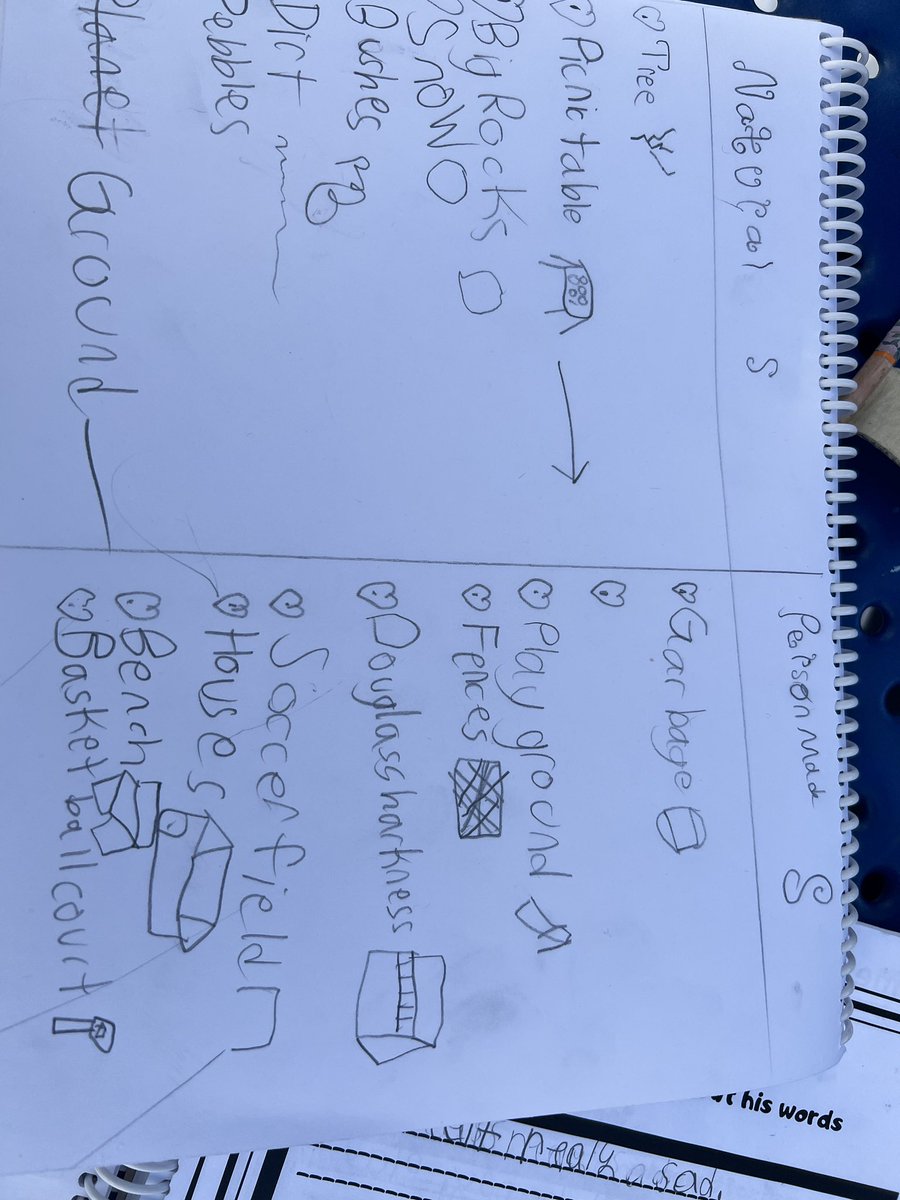 S
Person Made S
Tree
Picnic table
Big Rocks
Snow
Bushes
Dirt
Pebbles
Planet Ground
Garbage
Playground
Fences
Douglass harkness
Soccer field
Houses
Bench
Basket ball court
his words
sad.